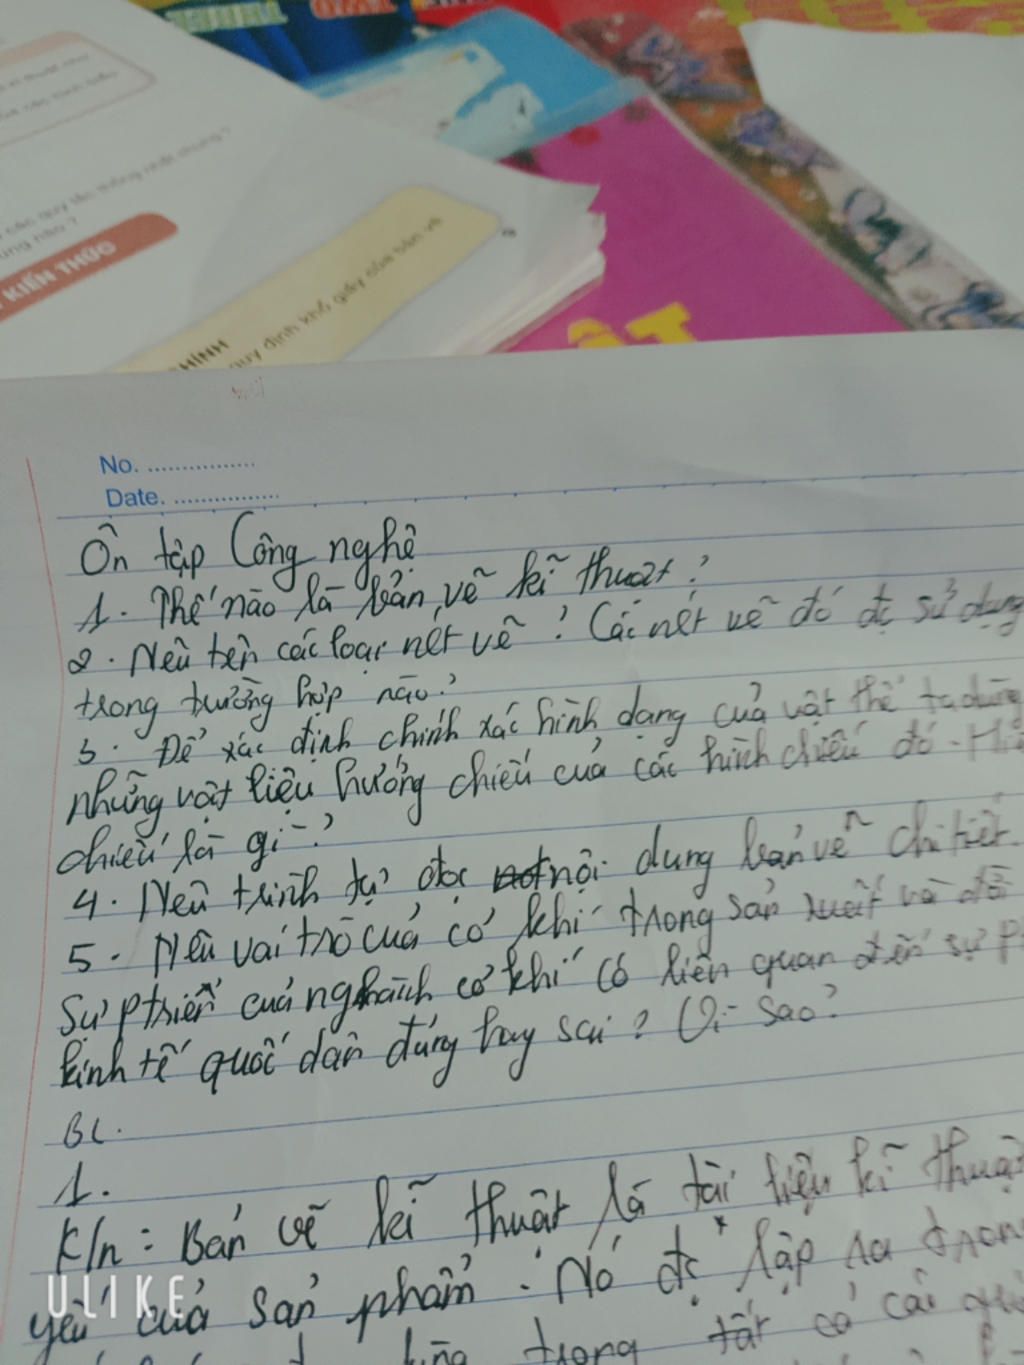 KIẾN THỨC
CHÍNH
quy định khổ giấy của bản vẽ
No.
Date.
Ôn tập Công nghệ
1. Thế nào là bản vẽ kĩ thuật?
2. Nêu tên các loại nét vẽ? Các nét vẽ đó đc sử dụng
trong trường hợp nào?
3. Để xác định chính xác hình dạng của vật thể ta dùng
những vật liệu hướng chiếu của các hình chiếu đó. Hì
chiếu là gì?
4. Nêu trình tự đọc nội dung bản vẽ chi tiết.
5. Nêu vai trò của cơ khí trong sản xuất và đời
Sự ptriển của nghành cơ khí có liên quan đến sự P
kinh tế quốc dân đúng hay sai? Vì sao?
BL.
1.
K/n: Bản vẽ kĩ thuật là tài liệu kĩ thuật
yếu của sản phẩm. Nó đc lập ra tron
trong tất cả các
ULIKE